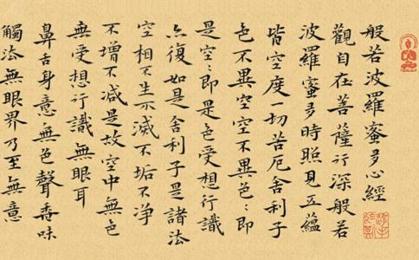 般若波羅蜜多心經
觀自在菩薩行深般若
波羅蜜多時照見五蘊
皆空度一切苦厄舍利子
色不異空空不異色〻即
是空〻即是色受想行識
亦復如是舍利子是諸法
空相不生滅不垢不淨
不增不減是故空中無色
無受想行識無眼耳
鼻舌身意無色聲香味
觸法無眼界乃至無意